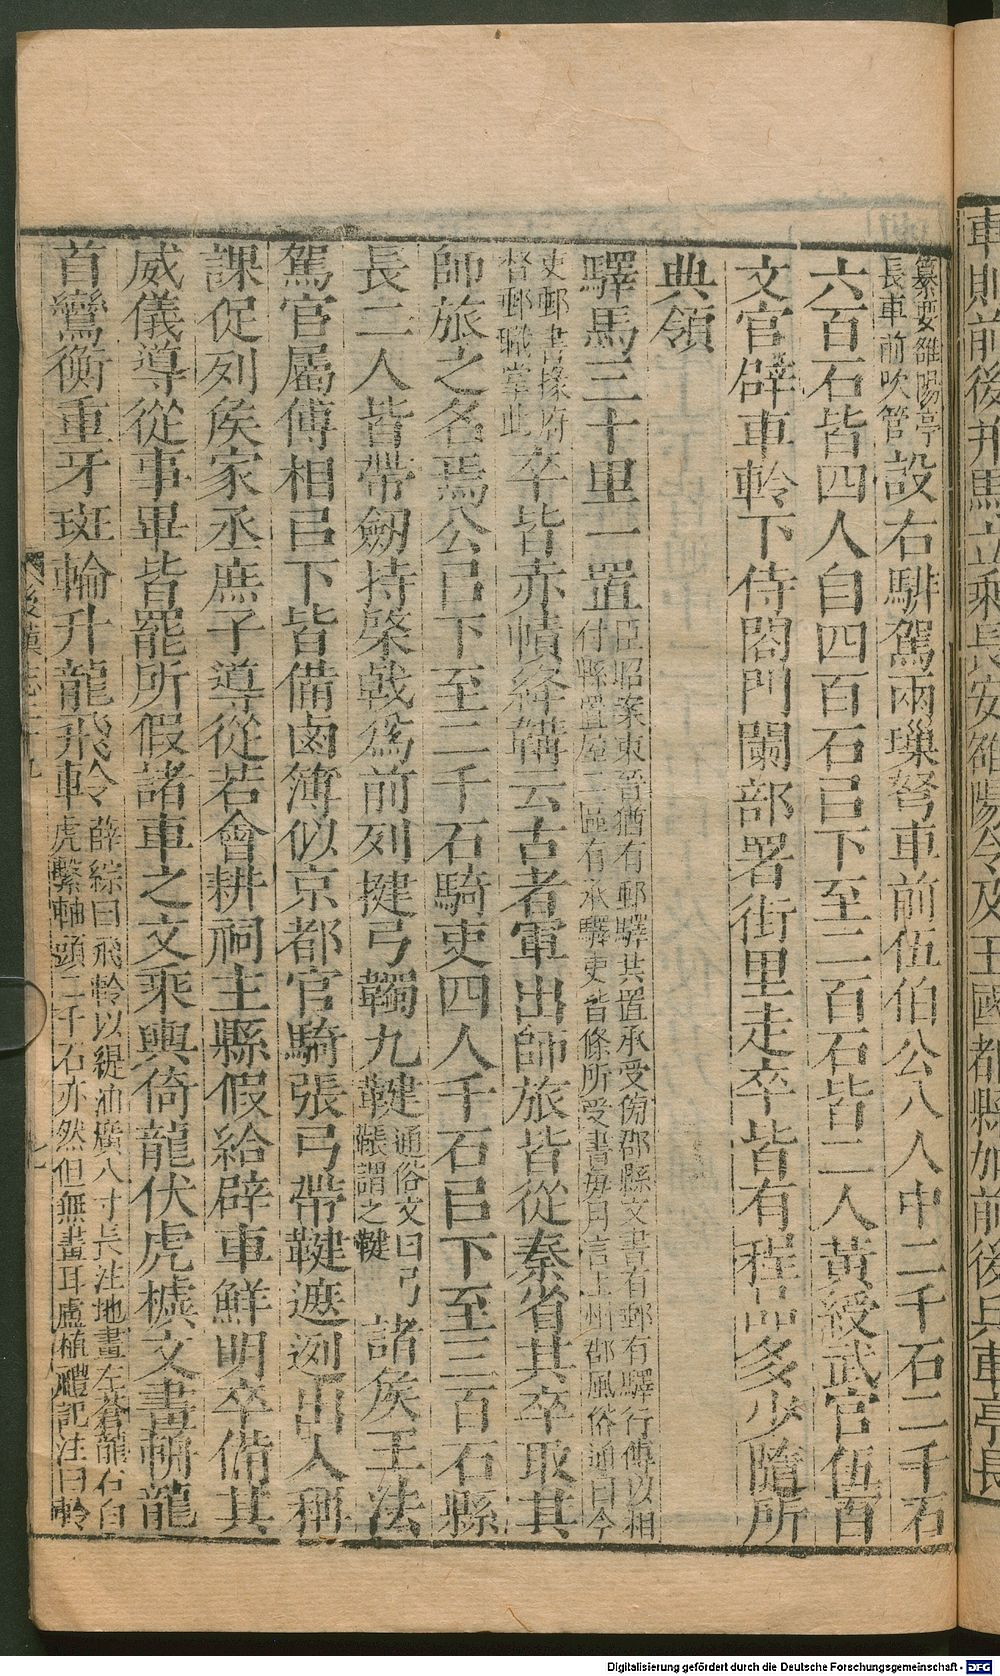 車則前後并馬立乘長安雒陽令及王國都縣加前後兵車亭長
纂要雒陽亭長車前吹管設右騑駕兩璅弩車前伍伯公八人中二千石二千石
六百石皆四人自四百石㠯下至二百石皆二人黃綬武官伍百
文官辟車軨下侍閤門闌部署街里走卒皆有程品多少隨所
典領
驛馬三十里一置臣昭案東晉猶有郵驛共置承受傍郡縣文書有郵有驛行傳以相付縣置屋二區有承驛吏皆條所受書每月言上州郡風俗通曰今
吏郵書掾府督郵職掌此卒皆赤幘絳韝云古者軍出師旅皆從秦省其卒取其
師旅之名焉公㠯下至二千石騎吏四人千石㠯下至三百石縣
長二人皆帶劒持棨戟爲前列揵弓韣九鞬通俗文曰弓韔謂之鞬諸矦王法
駕官屬傅相㠯下皆備鹵簿似京都官騎張弓帶鞬遮迾出入稱
課促列矦家丞庶子導從若會耕祠主縣假給辟車鮮明卒備其
威儀導從事畢皆罷所假諸車之文乘輿倚龍伏虎㯫文畫輈龍
首鸞衡重牙斑輪升龍飛軨薛綜曰飛軨以緹油廣八寸長注地畫左蒼龍右白虎繫軸頭二千石亦然但無畫耳盧植禮記注曰軨
後漢志二十九
七
Digitalisierung gefördert durch die Deutsche Forschungsgemeinschaft - DFG